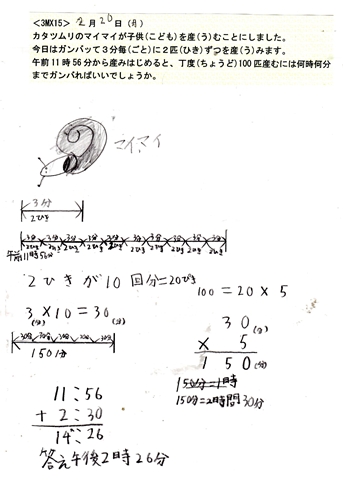 <3MX15> 2月20日(月)
カタツムリのマイマイが子供(こども)を産(う)むことにしました。
今日はガンバッて3分毎(ごと)に2匹(ひき)ずつを産(う)みます。
午前11時56分から産みはじめると、丁度(ちょうど)100匹産むには何時何分
までガンバればいいでしょうか。
マイマイ
3分
2ひき
3分 3分 3分 3分 3分 3分 3分 3分 3分 3分
2ひき 2ひき 2ひき 2ひき 2ひき 2ひき 2ひき 2ひき 2ひき 2ひき
午前11時56分
2ひきが10回分=20ぴき
3(分)×10=30(分)
30分 30分 30分 30分 30分
150分
100=20×5
30(分)
× 5
150(分)
150分=2時間30分
11:56
+ 2:30
14:26
答え午後2時26分